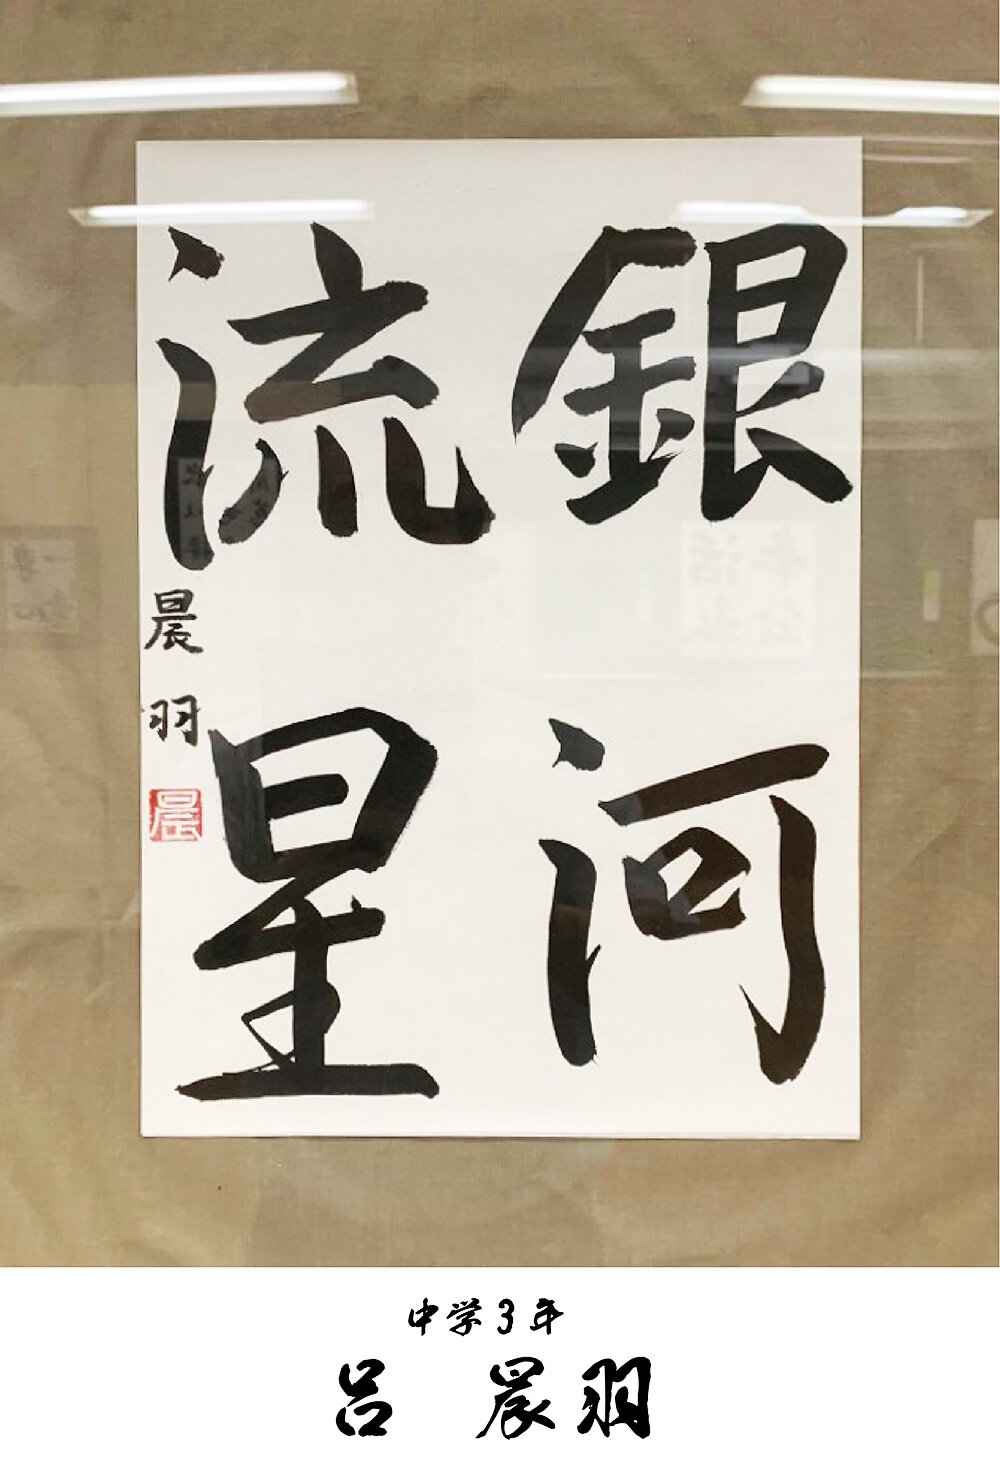 銀河
流星
晨羽
晨
中学3年
呂 晨羽